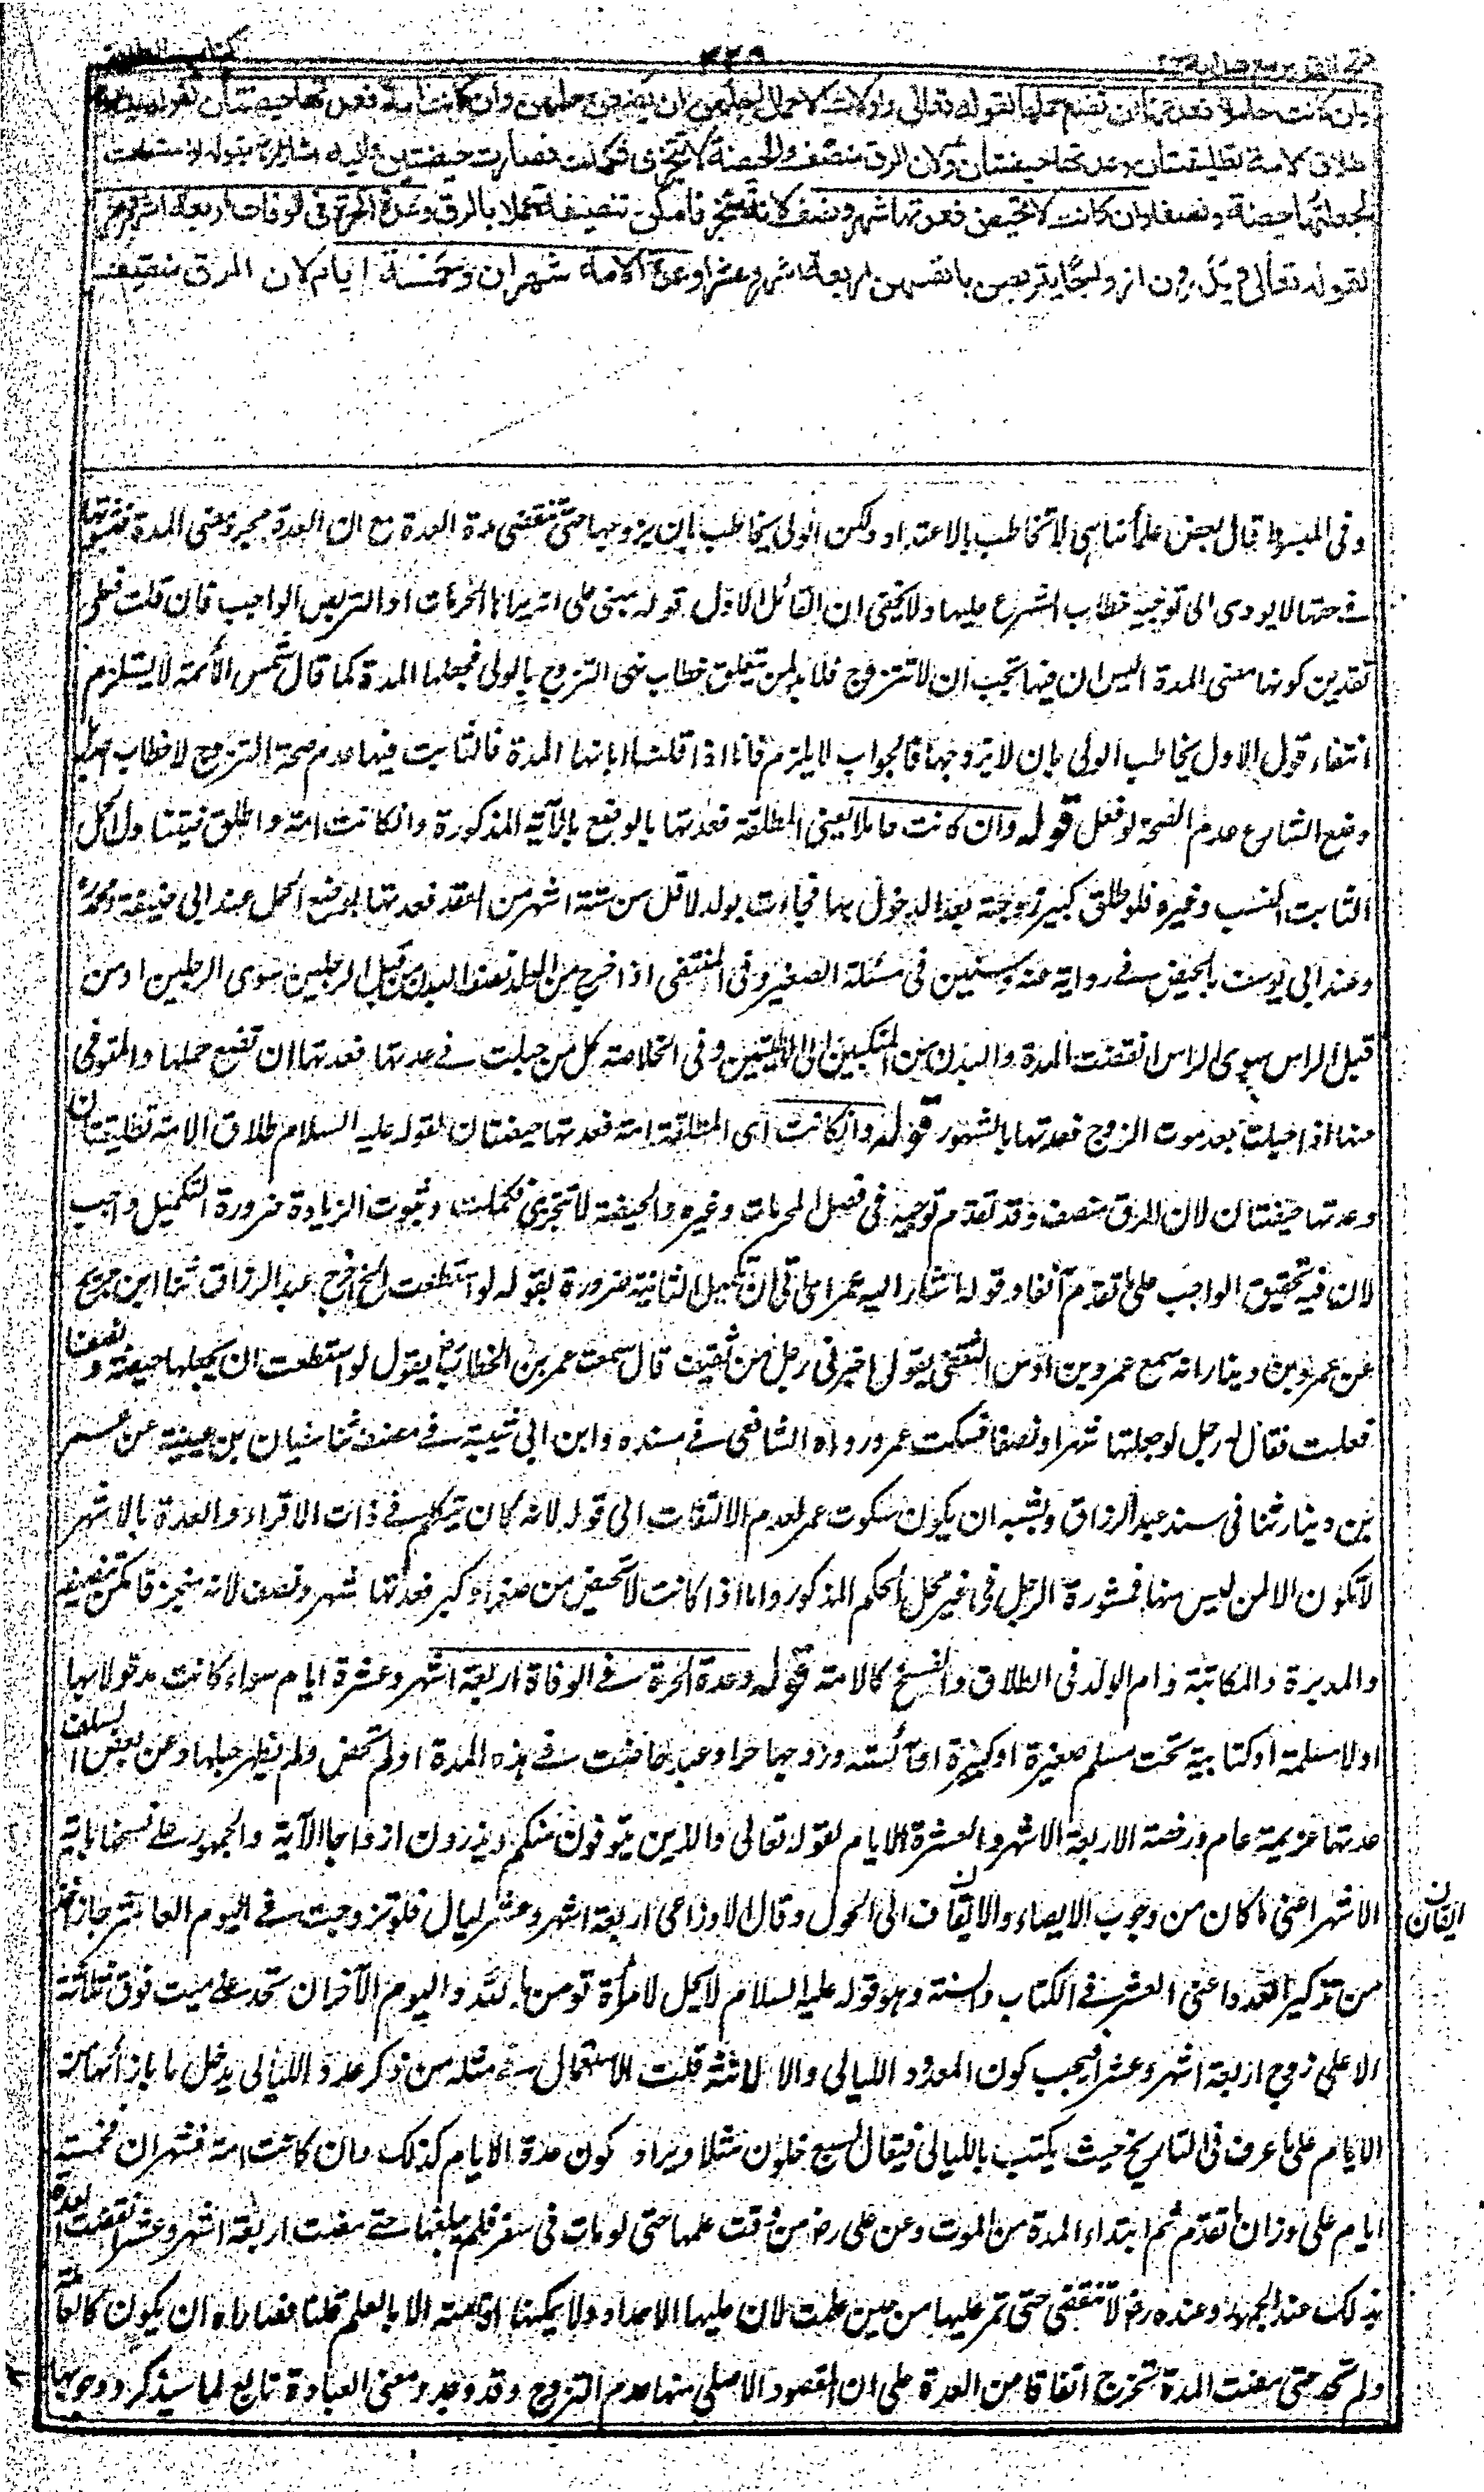 فتح القدير مع هداية ج ٢
٣٢٩
كتاب الطلاق
وان كانت حاملا فعدتها ان تضع حملها لقوله تعالى واولات الاحمال اجلهن ان يضعن حملهن وان كانت امة فعدتها حيضتان لقوله عليه السلام
طلاق الامة تطليقتان وعدتها حيضتان ولان الرق منصف والحيضة لا تتجزى فكملت فصارت حيضتين واليه اشار عمر بقوله لو استطعت
لجعلتها حيضة ونصفا وان كانت لا تحيض فعدتها شهر ونصف لانه متجز فامكن تنصيفه عملا بالرق وعدة الحرة فى الوفات اربعة اشهر وعشر
لقوله تعالى ويذرون ازواجا يتربصن بانفسهن اربعة اشهر وعشرا وعدة الامة شهران وخمسة ايام لان الرق منصف
وفى المبسوط قال بعض علمائنا هى لا تخاطب بالاعتداد ولكن الولى يخاطب بان يزوجها حتى تنقضى مدة العدة مع ان العدة مجرد مضى المدة فثبوتها
فى حقها لا يودى الى توجيه خطاب الشرع عليها ولا يخفى ان القائل الاول قوله مبنى على انه يراها الحرمات او التربص الواجب فان قلت فعلى
تقدير كونها مضى المدة اليس ان فيها تجب ان لا تتزوج فلا بد لمن يتعلق خطاب نهى التزوج بالولى فجعلها المدة كما قال شمس الأئمة لا يستلزم
انتفاء قول الاول يخاطب الولى بان لا يزوجها فالجواب لا يلزم فانا اذا قلنا انها المدة فالثابت فيها عدم صحة التزوج لا خطاب احد بل
وضع الشارع عدم الصحة لو فعل قوله وان كانت حاملا يعنى المطلقة فعدتها بالوضع بالآية المذكورة وان كانت امة واطلق فيتناول الحمل
الثابت النسب وغيره فلو طلق كبير زوجته بعد الدخول بها فجاءت بولد لاقل من ستة اشهر من العقد فعدتها بوضع الحمل عند ابى حنيفة ومحمد
وعند ابى يوسف بالحيض فى رواية عنه وسنبين فى مسئلة الصغير وفى المنتقى اذا خرج من الولد نصف البدن من قبل الرجلين سوى الرجلين او من
قبل الراس سوى الراس انقضت المدة والبدن من المنكبين الى الاليتين وفى الخلاصة كل من حبلت فى عدتها فعدتها ان تضع حملها والمتوفى
عنها اذا حبلت بعد موت الزوج فعدتها بالشهور قوله وان كانت اى المطلقة امة فعدتها حيضتان لقوله عليه السلام طلاق الامة تطليقتان
وعدتها حيضتان لان الرق منصف وقد تقدم توجيهه فى فصل المحرمات وغيره والحيضة لا تتجزى فكملت وثبوت الزيادة ضرورة التكميل واجب
لان فيه تحقيق الواجب على ما تقدم آنفا وقوله اشار اليه عمر اى الى ان تكميل الثانية ضرورة بقوله لو استطعت الخ اخرج عبد الرزاق ثنا ابن جريج
عن عمرو بن دينار انه سمع عمرو بن اوس الثقفى يقول اخبرنى رجل من ثقيف قال سمعت عمر بن الخطاب رض يقول لو استطعت ان يجعلها حيضة و نصفا
فعلت فقال له رجل لو جعلتها شهرا ونصفا فسكت عمر ورواه الشافعى فى مسنده وابن ابى شيبة فى مصنفه ثنا سفيان بن عيينة عن عمر
بن دينار ثنا فى سند عبد الرزاق ويشبه ان يكون سكوت عمر لعدم الالتفات الى قوله لانه كان يتكلم فى ذات الاقراء والعدة بالاشهر
لا تكون الا لمن ليس منها فمشورة الرجل فى غير محل الحكم المذكور واما اذا كانت لا تحيض من صغر او كبر فعدتها شهر ونصف لانه متجز فامكن تنصيفه
والمدبرة والمكاتبة وام الولد فى الطلاق والفسخ كالامة قوله وعدة الحرة فى الوفاة اربعة اشهر وعشرة ايام سواء كانت مدخولا بها
اولا مسلمة او كتابية تحت مسلم صغيرة او كبيرة او آئسة وزوجها حر او عبد حاضت فى هذه المدة او لم تحض ولم يظهر حبلها وعن بعض السلف
عدتها عزيمة عام ورخصة الاربعة الاشهر والعشرة الايام لقوله تعالى والذين يتوفون منكم ويذرون ازواجا الآية والجمهور على نسخها بآية
الاشهر اعنى ما كان من وجوب الايصاء والايقاف الى الحول وقال الاوزاعى اربعة اشهر وعشر ليال فلو تزوجت فى اليوم العاشر جاز اخذا
من تذكير العدد اعنى العشر فى الكتاب والسنة وهو قوله عليه السلام لا يحل لامرأة تومن بالله واليوم الآخر ان تحد على ميت فوق ثلثة
الا على زوج اربعة اشهر وعشرا فيجب كون المعدود الليالى والا لانثه قلت الاستعمال فى مثله من ذكر عدد الليالى يدخل ما بازائها من
الايام على ما عرف فى التاريخ حيث يكتب بالليالى فيقال لسبع خلون مثلا ويراد كون عدة الايام كذلك وان كانت امة فشهران وخمسة
ايام على وزان ما تقدم ثم ابتداء المدة من الموت وعن على رض من وقت علمها حتى لو مات فى سفر فلم يبلغها حتى مضت اربعة اشهر وعشرا انقضت العدة
بذلك عند الجمهور وعنده رض لا تنقضى حتى تمر عليها من حين علمت لان عليها الاحداد ولا يمكنها اقامته الا بالعلم قلنا قصاراه ان يكون كالعالمة
ولم تحد حتى مضت المدة تخرج اتفاقا من العدة على ان المقصود الاصلى منها عدم التزوج وقد وجد ومعنى العبادة تابع لما سيذكر ووجوبها